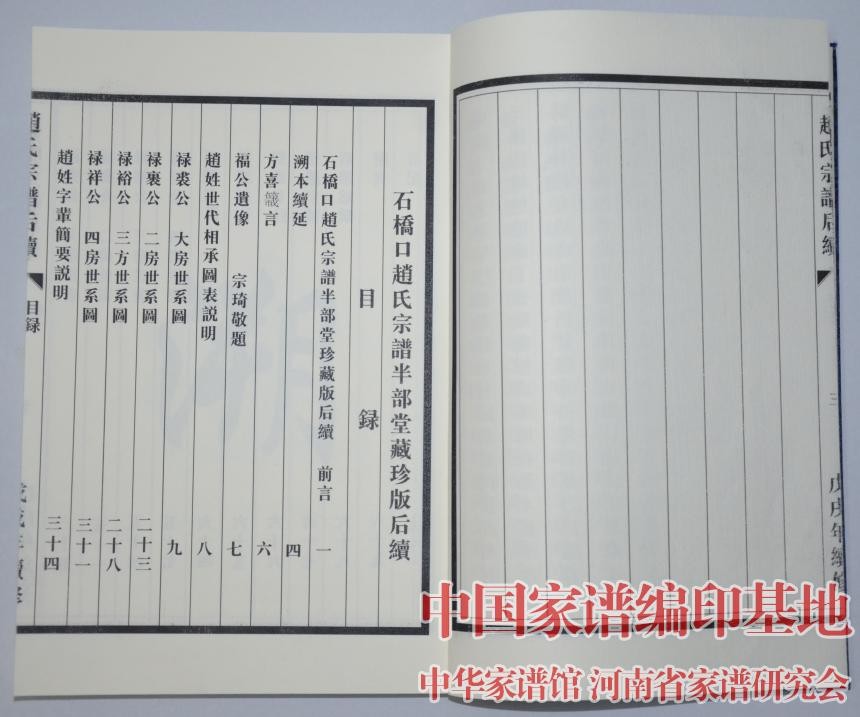 石橋口趙氏宗譜半部堂藏珍版后續
目 録
石橋口趙氏宗譜半部堂珍藏版后續 前言 一
溯本續延 四
方喜箴言 六
福公遺像 宗琦敬題 七
趙姓世代相承圖表説明 八
禄裘公 大房世系圖 九
禄裹公 二房世系圖 二十三
禄裕公 三方世系圖 二十八
禄祥公 四房世系圖 三十一
趙姓字輩簡要説明 三十四
趙氏宗譜后續
目録
戊戌年續修
趙氏宗譜后續
三
戊戌年續修
中国家谱编印基地
中华家谱馆 河南省家谱研究会